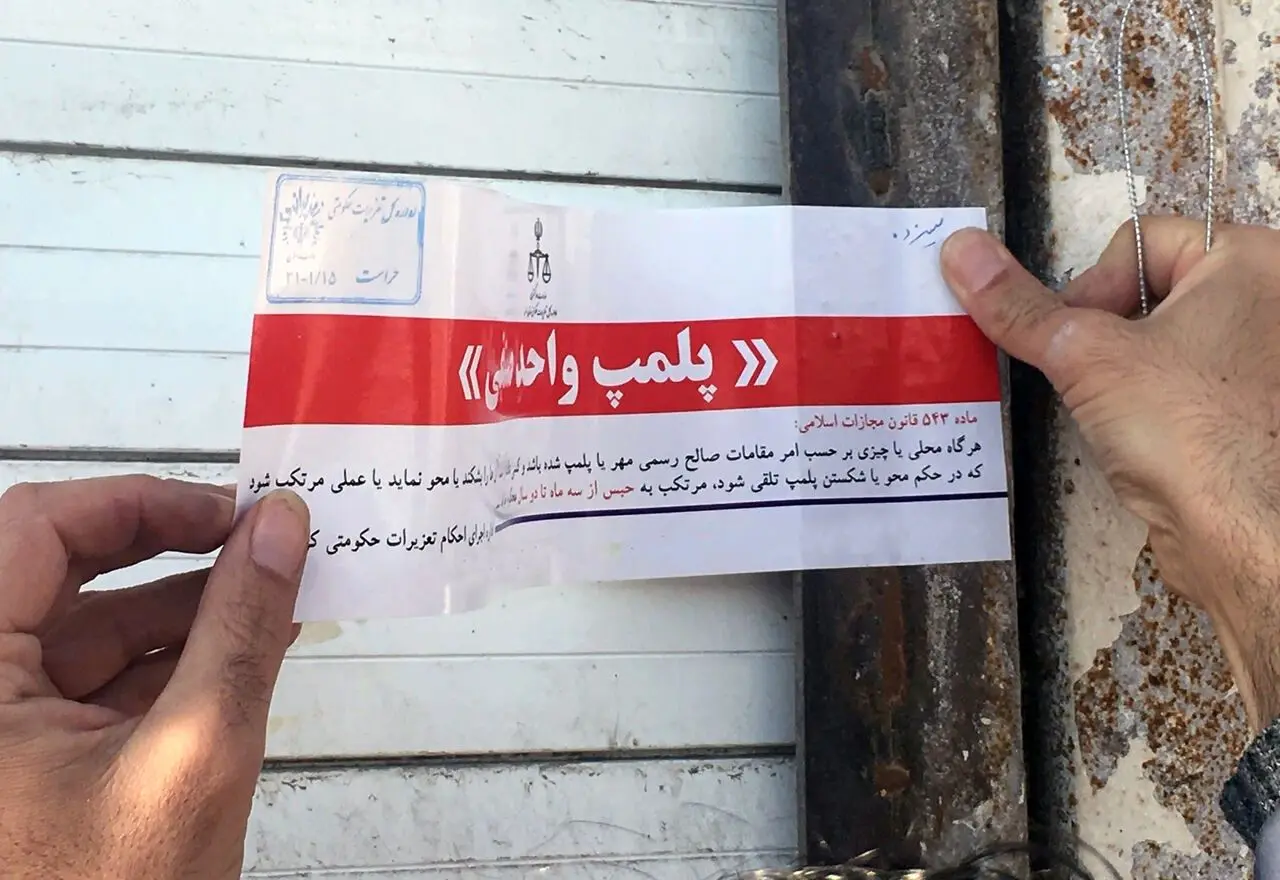 اداره کل تعزیرات حکومتی
حراست
۲۱-۱/۱۵
سیزده
« پلمپ واحد صنفی »
ماده ۵۴۳ قانون مجازات اسلامی:
هرگاه محلی یا چیزی بر حسب امر مقامات صالح رسمی مهر یا پلمپ شده باشد و کسی را بشکند یا محو نماید یا عملی مرتکب شود
که در حکم محو یا شکستن پلمپ تلقی شود، مرتکب به حبس از سه ماه تا دو سال
اجرای احکام تعزیرات حکومتی